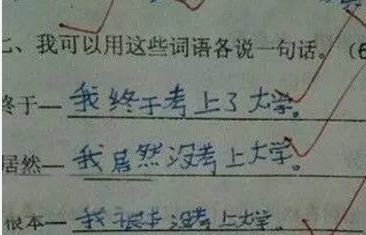 二、我可以用这些词语各说一句话。(6
终于—我终于考上了大学。
居然—我居然没考上大学。
根本—我根本没考上大学.